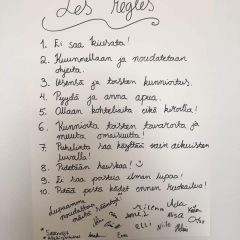 Les règles
1. Ei saa kiusata!
2. Kuunnellaan ja noudatetaan
ohjeita.
3. Itsensä ja toisten kunnioitus.
4. Pyydä ja anna apua.
5. Ollaan kohteliaita eikä kiroilla!
6. Kunnioita toisten tavaroita ja
muuta omaisuutta!
7. Puhelinta saa käyttää vain aikuisten
luvalla!
8. Pidetään hauskaa!
9. Ei saa poistua ilman lupaa!
10. Pitää pestä kädet ennen ruokailua!
Lupaamme
noudattaa
näitä sääntöjä!